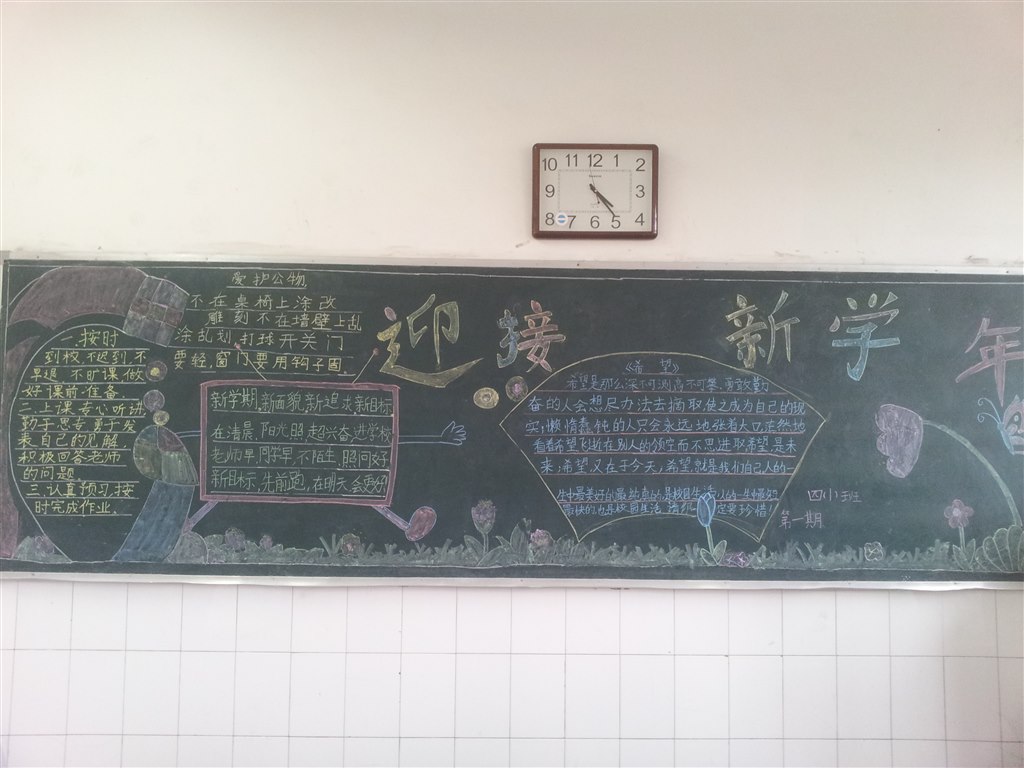 10 11 12 1 2
9 3
8 7 6 5 4
迎接新学年
爱护公物
不在桌椅上涂改
雕刻不在墙壁上乱
涂乱划,打球开关门
要轻,窗门要用钩子固
一.按时
到校不迟到.不
早退 不旷课.做
好课前准备
二.上课专心听讲
勤于思专勇于发
表自己的见解.
积极回答老师
的问题.
三.认真预习.按
时完成作业.
新学期.新面貌.新追求新目标
在清晨.阳光照.超兴奋.进学校
老师早.同学早.不陌生.照问好
新目标.先前跑.在明天会更好
《希望》
希望是那么深不可测高不可攀.勇敢勤
奋的人会想尽办法去摘取使之成为自己的现
实;懒惰愚钝的人只会永远地张着大口茫然地
看着希望飞逝在别人的领空而不思进取希望是未
来;希望又在于今天,希望就是我们自己人的一
生中最美好的最纯真的是校园生活
最快的也是校园生活 定要珍惜!
四小班
第一期